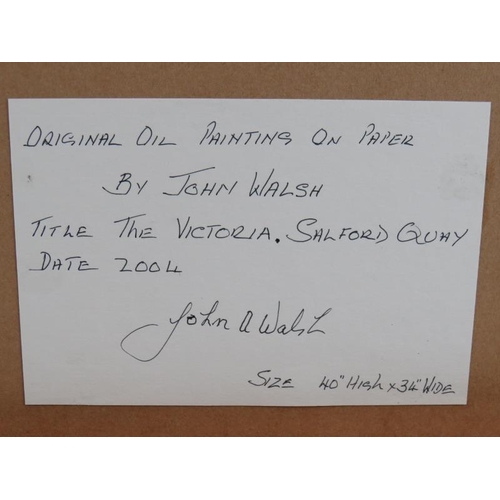 ORIGINAL OIL PAINTING ON PAPER
BY JOHN WALSH
TITLE THE VICTORIA. SALFORD QUAY
DATE 2004
John A Walsh
SIZE 40" HIGH x 34" WIDE